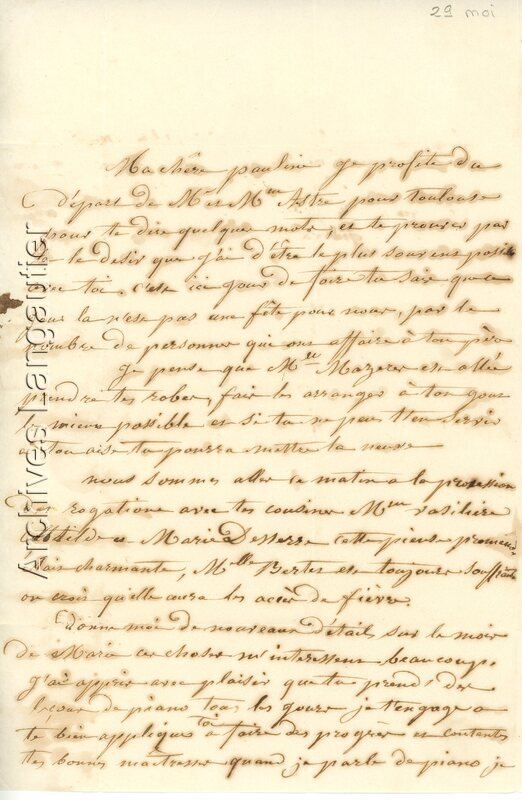 29 mai
Ma chère pauline je profite du
départ de Mr et Mme Astre pour toulouse
pour te dire quelque mots, et te prouver par
la le desir que j'ai d'être le plus souvent possible
avec toi. c'est ici jour de foire tu sais que ce
jour la n'est pas une fête pour nous, par le
nombre de personnes qui ont affaire à ton père
Je pense que Mlle Mazeres est allée
prendre tes robes, fais les arranger à ton gout
le mieux possible et si tu ne peus t'en servir
a ton aise tu pourra mettre la neuve
nous sommes aller ce matin a la procession
des rogations avec tes cousines Mme
Clotilde et Marie Desserre cette pieuse promenade
était charmante, Melle Bertes est toujours souffrante
on crois qu'elle aura les accès de fièvre.
Donne moi de nouveaux détails sur le mois
de Marie ces choses m'interessent beaucoup.
J'ai appris avec plaisir que tu prends des
leçons de piano tous les jours je t'engage a
te bien appliqué à faire des progrès et contenter
tes bonnes maîtresses quand je parle de piano je
Archives Langautier